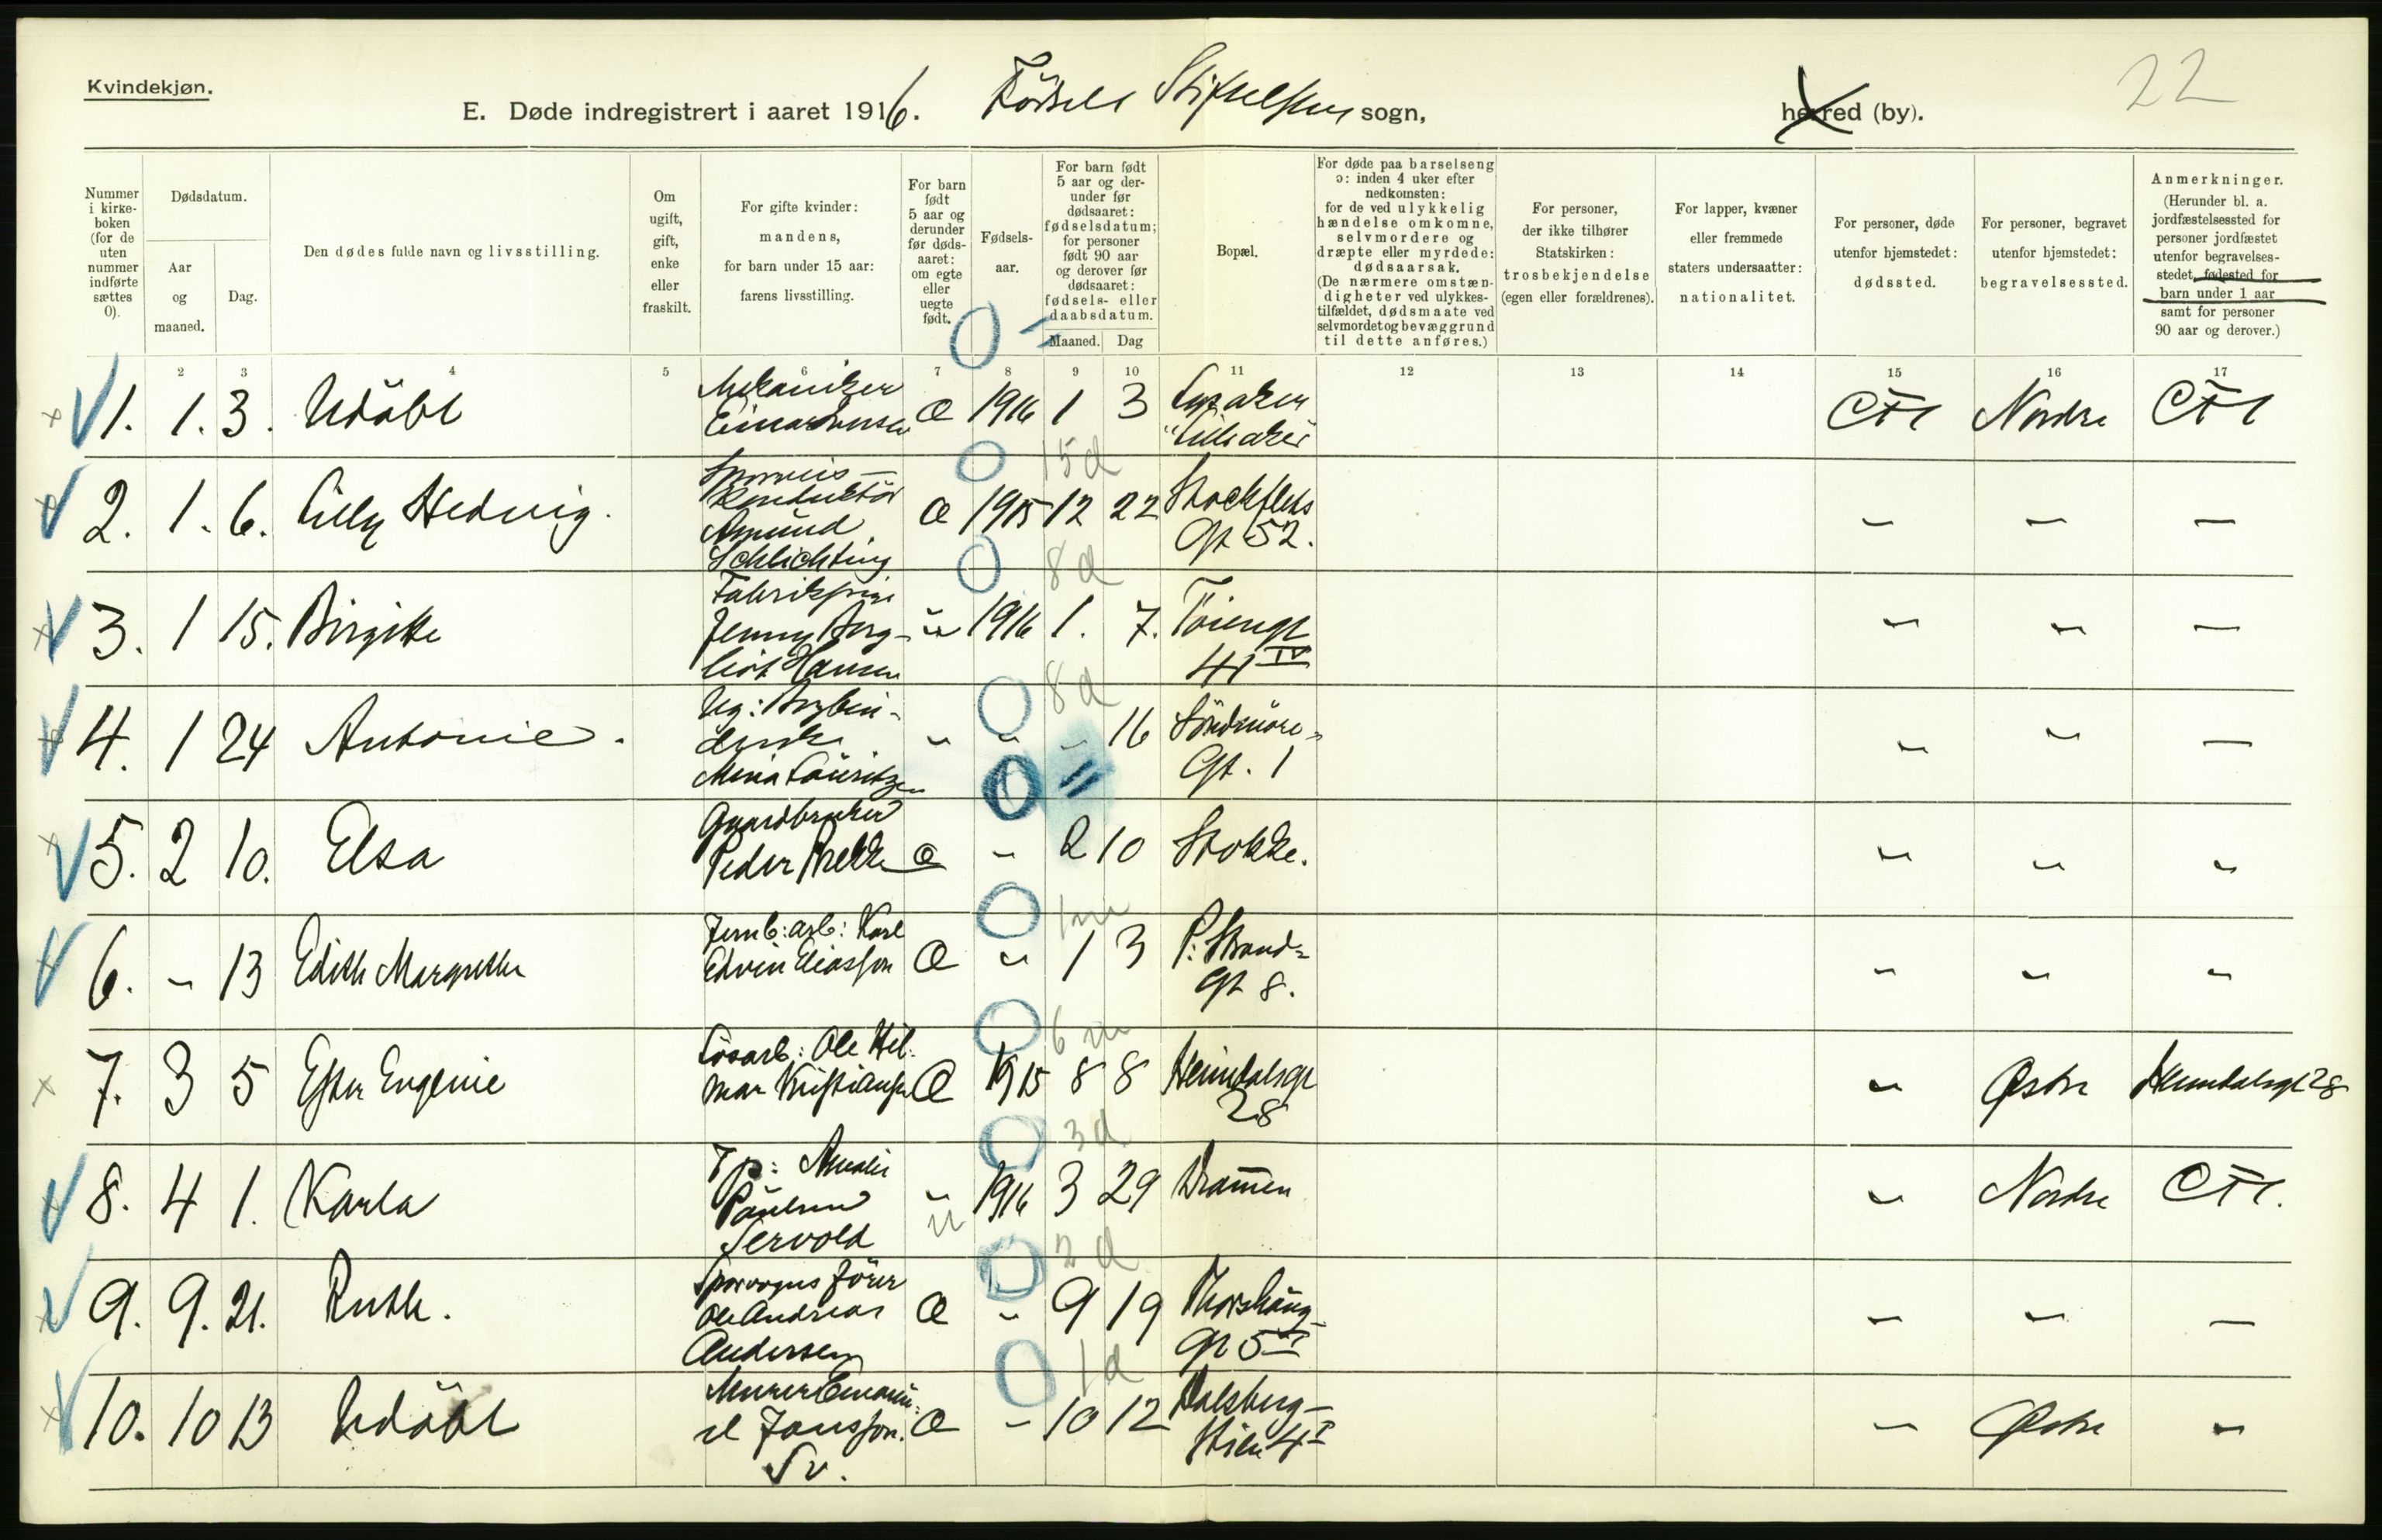 Kvindekjøn.
22
E. Døde indregistrert i aaret 1916. Fødsels Stiftelsen sogn, herred (by).
Nummer i kirke-boken (for de uten nummer indførte sættes 0).
Dødsdatum.
Aar og maaned.
Dag.
Den dødes fulde navn og livsstilling.
Om ugift, gift, enke eller fraskilt.
For gifte kvinder: mandens, for barn under 15 aar: farens livsstilling.
For barn født 5 aar og derunder før døds-aaret: om egte eller uegte født.
Fødsels-aar.
For barn født 5 aar og der-under før dødsaaret: fødselsdatum; for personer født 90 aar og derover før dødsaaret: fødsels- eller daabsdatum.
Maaned. Dag
Bopæl.
For døde paa barselseng ɔ: inden 4 uker efter nedkomsten: for de ved ulykkelig hændelse omkomne, selvmordere og dræpte eller myrdede: dødsaarsak. (De nærmere omstæn-digheter ved ulykkes-tilfældet, dødsmaate ved selvmord et og bevæggrund til dette anføres.)
For personer, der ikke tilhører Statskirken: trosbekjendelse (egen eller forældrenes).
For lapper, kvæner eller fremmede staters undersaatter: nationalitet.
For personer, døde utenfor hjemstedet: dødssted.
For personer, begravet utenfor hjemstedet: begravelsessted.
Anmerkninger. (Herunder bl. a. jordfæstelsessted for personer jordfæstet utenfor begravelses-stedet, fødested for barn under 1 aar samt for personer 90 aar og derover.)
2 3 4 5 6 7 8 9 10 11 12 13 14 15 16 17
1. 1. 3. Udöbt Mekaniker Einar æ 1916 1 3 Lysaker "Lilleaker" Nordre
15d
2. 1. 6. Lilly Hedvig. Sporveis-Konduktör Amund Schlichting æ 1915 12 22 Stockflets Gt 52. – – –
8d
3. 1 15. Birgitte Fabrikspige Jenny Borg-liot Hansen – u 1916 1. 7. Töiengt 41 IV " " –
8d
4. 1 24 Antonie. Ug: Mina Lauritzen " " " 16 Söndmöre-Gt. 1 " " –
5. 2 10. Elsa Gaardbruker Peder æ " 2 10 Stokke. " " "
1m
6. " 13 Edith Margrethe Jernb: arb: Karl Edvin Eliasson æ " 1 3 P: Strand-gt 8. " " "
6m
7. 3 5 Ester Eugenie Lösarb: Ole Hil-mar Kristiansen æ 1915 8 8 Heimdalsgt 28 " Østre Heimdalsgt 28
3d
8. 4 1. Karla Tp: Amalie Paulsen Servold " u 1916 3 29 Dramen " Nordre
2d
9. 9. 21. Ruth. Sporvogns förer Ole Andreas Andersen æ " 9 19 Thorshaug-gt 5 " " –
1d
10. 10 13 Udöbt Murer Emanu-el Jonsson. Sv. æ " 10 12 Dalsberg-stien 4 I " Østre "